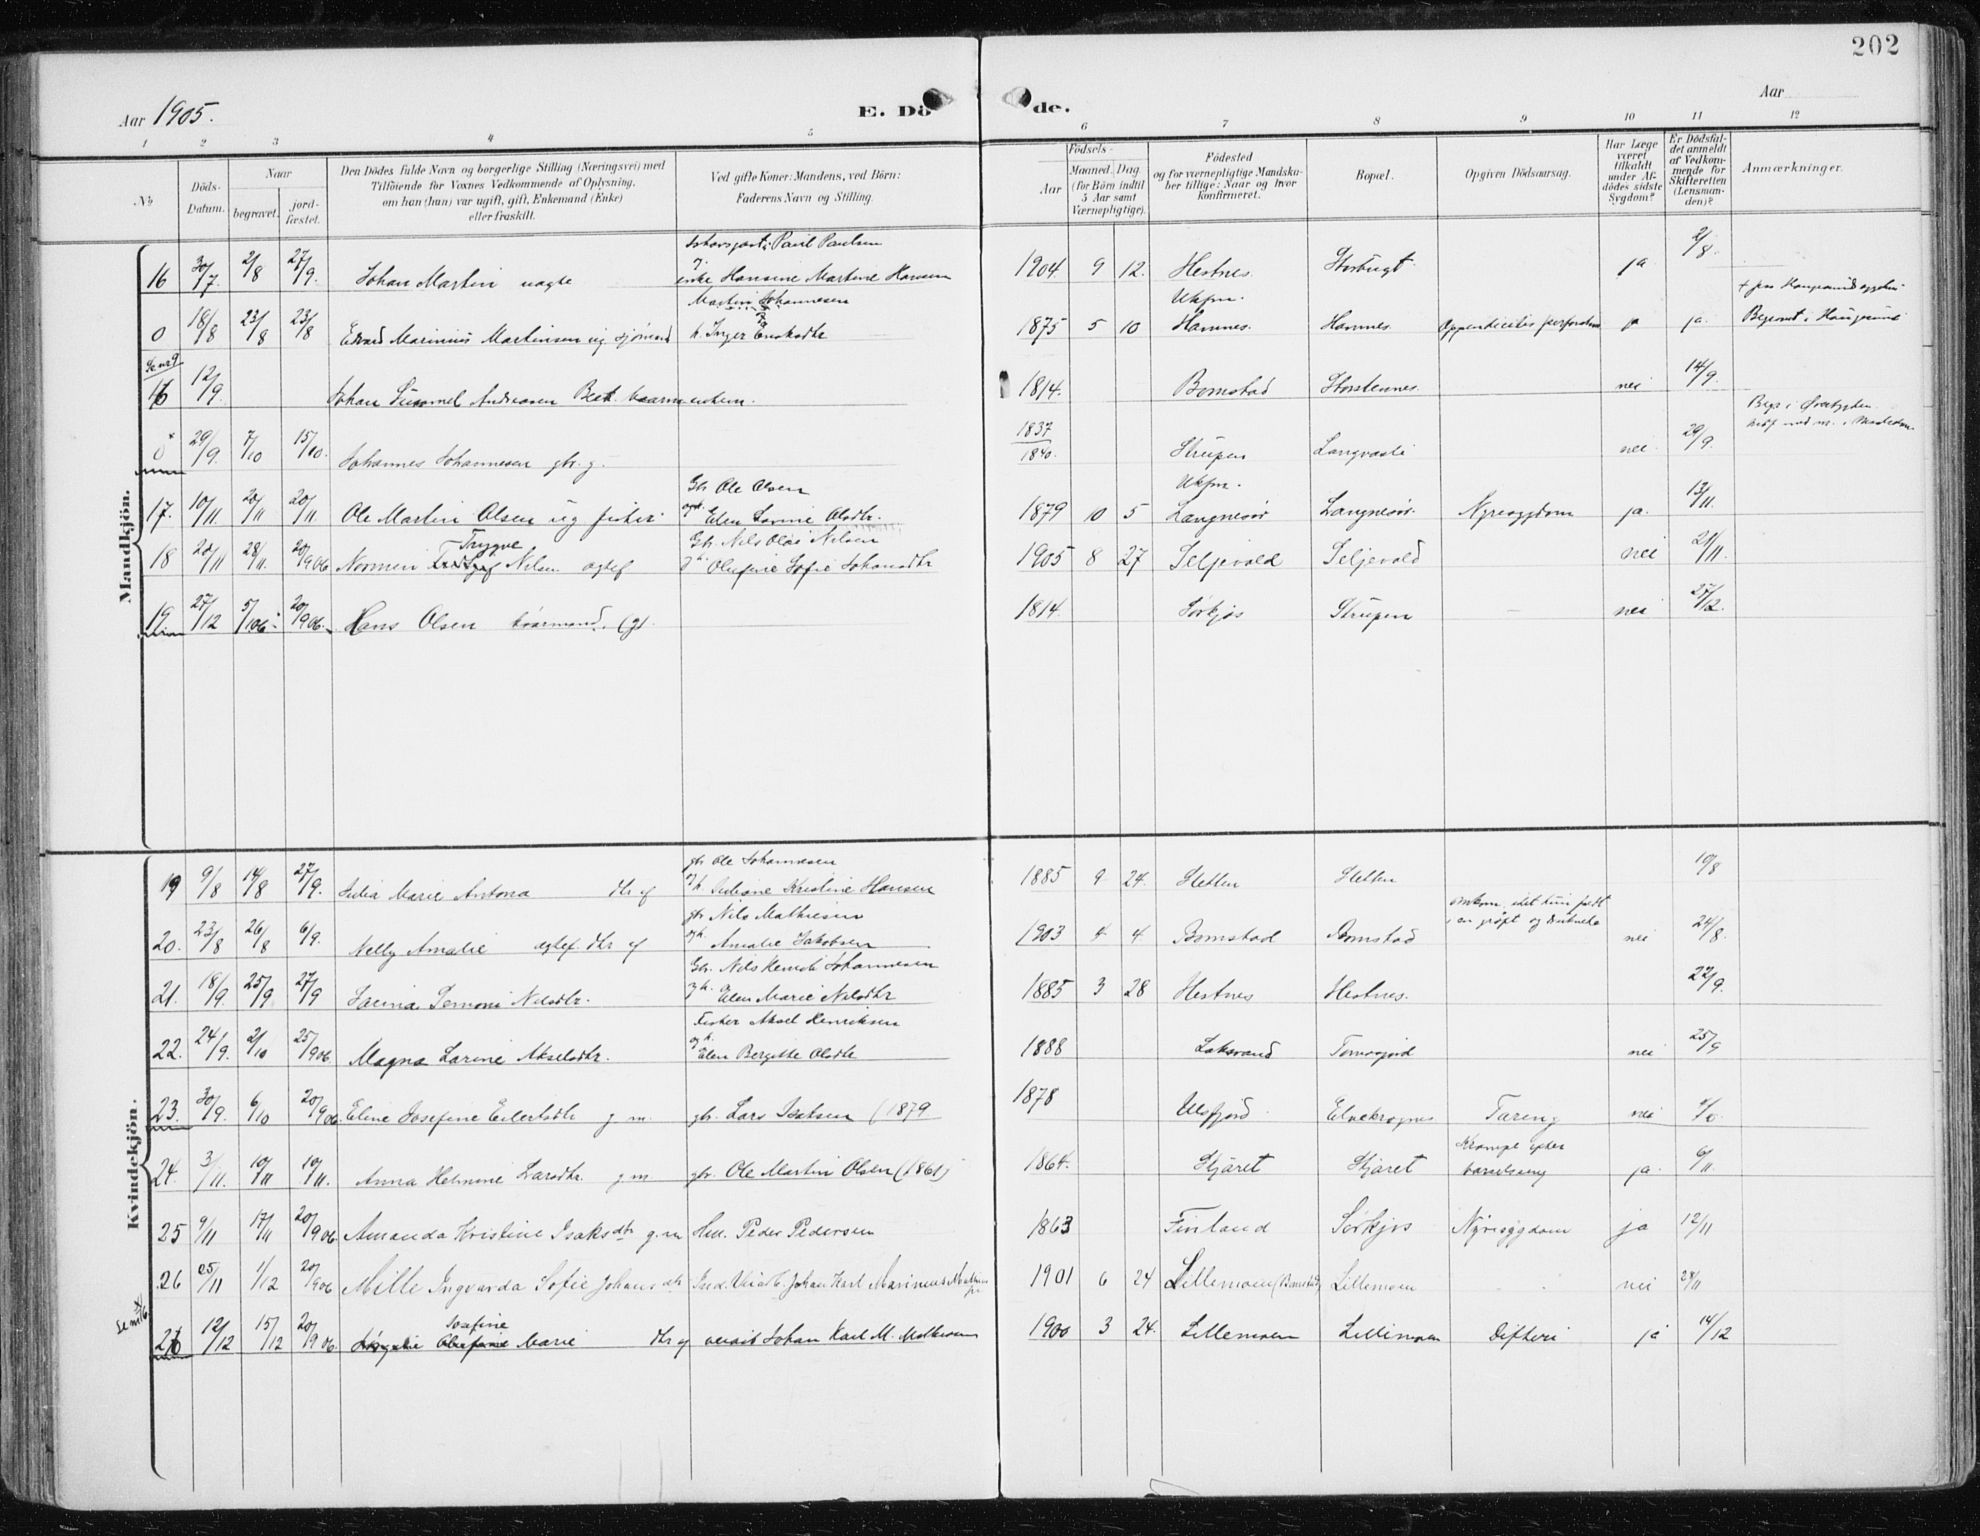 202
Aar 1905.
E. Dö de.
Aar
1 2 3 4 5 6 7 8 9 10 11 12
No
Döds-Datum.
Naar
begravet.
jord-fæstet.
Den Dödes fulde Navn og borgerlige Stilling (Næringsvei) med
Tilföiende for Voxnes Vedkommende af Oplysning,
om han (hun) var ugift, gift, Enkemand (Enke)
eller fraskilt.
Ved gifte Koner: Mandens, ved Börn:
Faderens Navn og Stilling.
Födsels-
Aar
Maaned. Dag
(for Börn indtil
5 Aar samt
Værnepligtige).
Födested
og for værnepligtige Mandska-
ber tillige: Naar og hvor
konfirmeret.
Bopæl.
Opgiven Dödsaarsag.
Har Læge
været
tilkaldt
under Af-
dödes sidste
Sygdom?
Er Dödsfal-
det anmeldt
af Vedkom-
mende for
Skifteretten
(Lensman-
den)?
Anmærkninger.
Mandkjön.
Paul Paulsen
16 30/7 2/8 27/9. Johan Martin uagte enke Hansine Martine Hansen 1904 9 12. Hestnes. Storbugt ja 2/8.
Martin Johannesen
0 18/8 23/8 23/8 Edvard Marinius Martinsen ug sjømand h. Inger 1875 5 10 Hamnes. Hamnes. Appendicites perforativa ja ja.
Se nr 9
16 12/9 Johan Andreasen 1814. Bomstad Storstennes. nei 14/9.
29/9. 7/10 15/10. Johannes Johannesen gbr. g. 1837/1840. Strupen Langvasli nei 29/9.
Gbr Ole Olsen Ukfm.
17. 10/11. 20/11 20/11. Ole Martin Olsen ug fisker Elen Larine Olsdtr. 1879 10 5 Langnesør Langnesør. Nyresygdom ja. 13/11.
Trygve Gbr. Nils Olai Nilsen
18 20/11 28/11. 20/9 06 Normin Nilsen Olufine Sofie Johansdtr 1905 8 27 Seljevold Seljevold nei 21/11.
19. 27/12 5/1 06. 20/9 06. Hans Olsen kaarmand. (g). 1814. Sørkjos Strupen nei 27/12.
Kvindekjön.
gbr Ole Johannesen
19 9/8 14/8 27/9. Julia Marie Antona dtr af Juliane Kristine Hansen 1885 9 24. Sletten Sletten 10/8
gbr Nils Mathisen
20. 23/8 26/8 6/9. Nelly Amalie dtr af Amalie Jakobsen 1903 4 4 Bomstad Bomstad i en grøft og druknede nei 24/8.
Gbr. Nils Henrik Johannesen
21. 18/9. 25/9. 27/9 Larina Nilsdtr. Elen Marie Nilsdtr 1885 3 28 Hestnes Hestnes. 22/9.
Fisker Aksel Henriksen
22. 24/9. 2/10 25/9 06. Magna Larine Akselsdtr. Elen Bergitte Olsdtr 1888 Laksvand nei 25/9
23. 30/9. 6/10 20/9 06. Eline Josefine Eilertsdtr g. m. gbr. Lars Isaksen (1879 1878 Ulsfjord Elvekrognes Tæring nei
Krampe efter
24. 3/11. 10/11 10/11. Anna Helmine Larsdtr. g m gbr. Ole Martin Olsen (1861) 1864. Stjaret Stjaret barselseng ja. 6/11
25 9/11 17/11 20/9 06. Amanda Kristine Isaksdtr g. m Peder Pedersen 1863 Finland Sørkjos Nyresygdom ja 12/11
26 25/11 1/12 20/9 06 Mille Ingvarda Sofie Johansdtr Johan Karl Marinius 1901 6 24 Lillemoen (Bomstad) Lillemoen nei 28/11
Josefine
26 12/12 15/12 20/9 06. Marie dtr af Johan Karl M. Mathisen 1900 3 24. Lillemoen Lillemoen Difteri ja 14/12